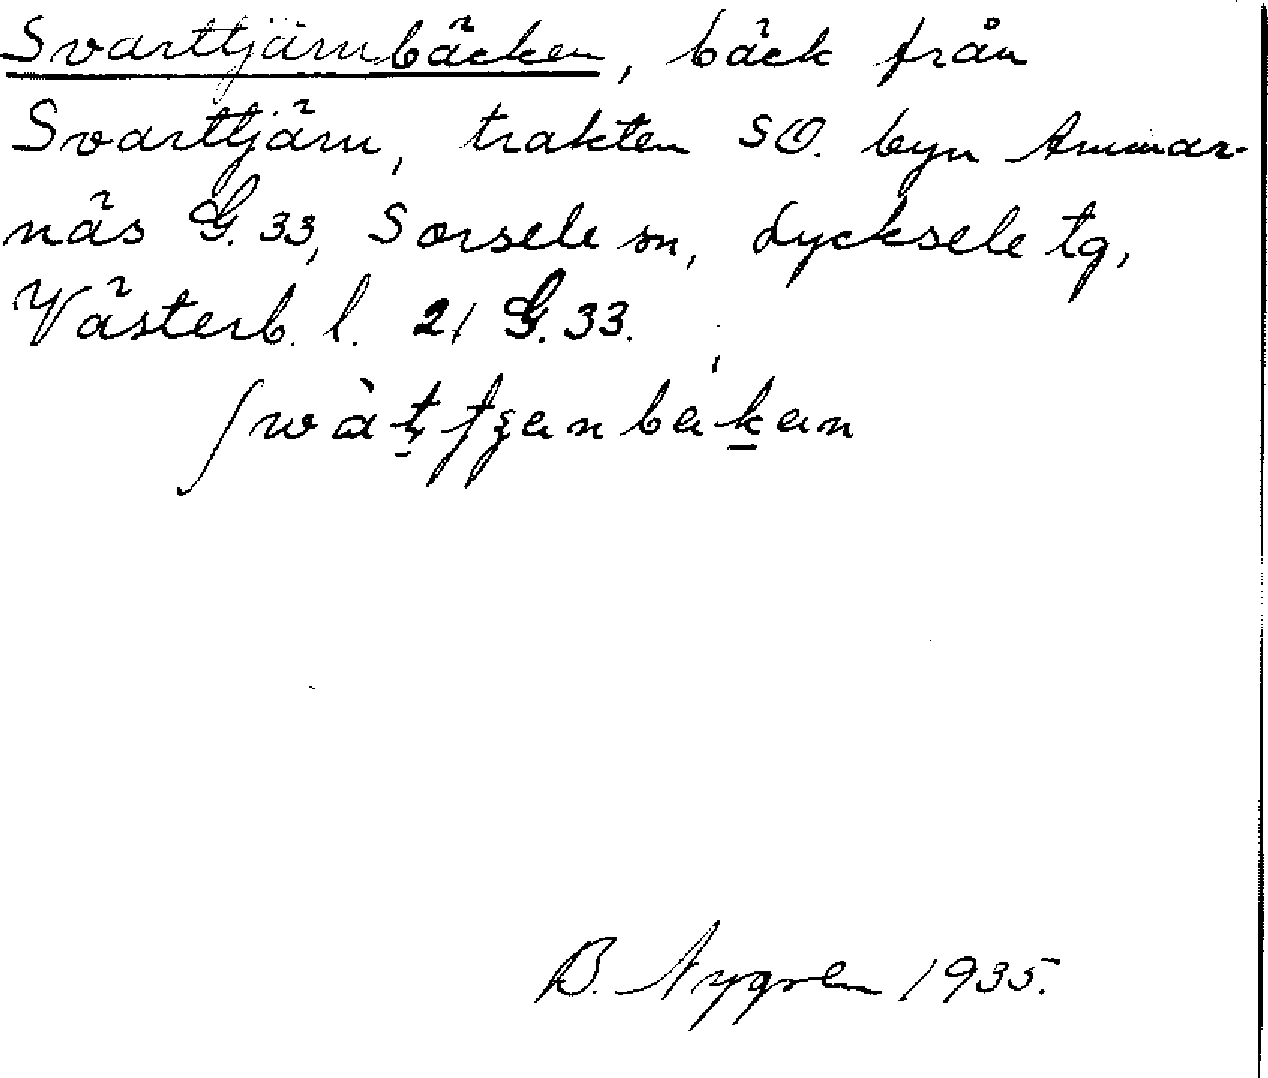 Svarttjärnbäcken, bäck från
Svarttjärn, trakten SO. byn Ammar-
näs G. 33, Sorsele sn, Lycksele tg,
Västerb. l. 21 G. 33.
B. Nygren 1935.